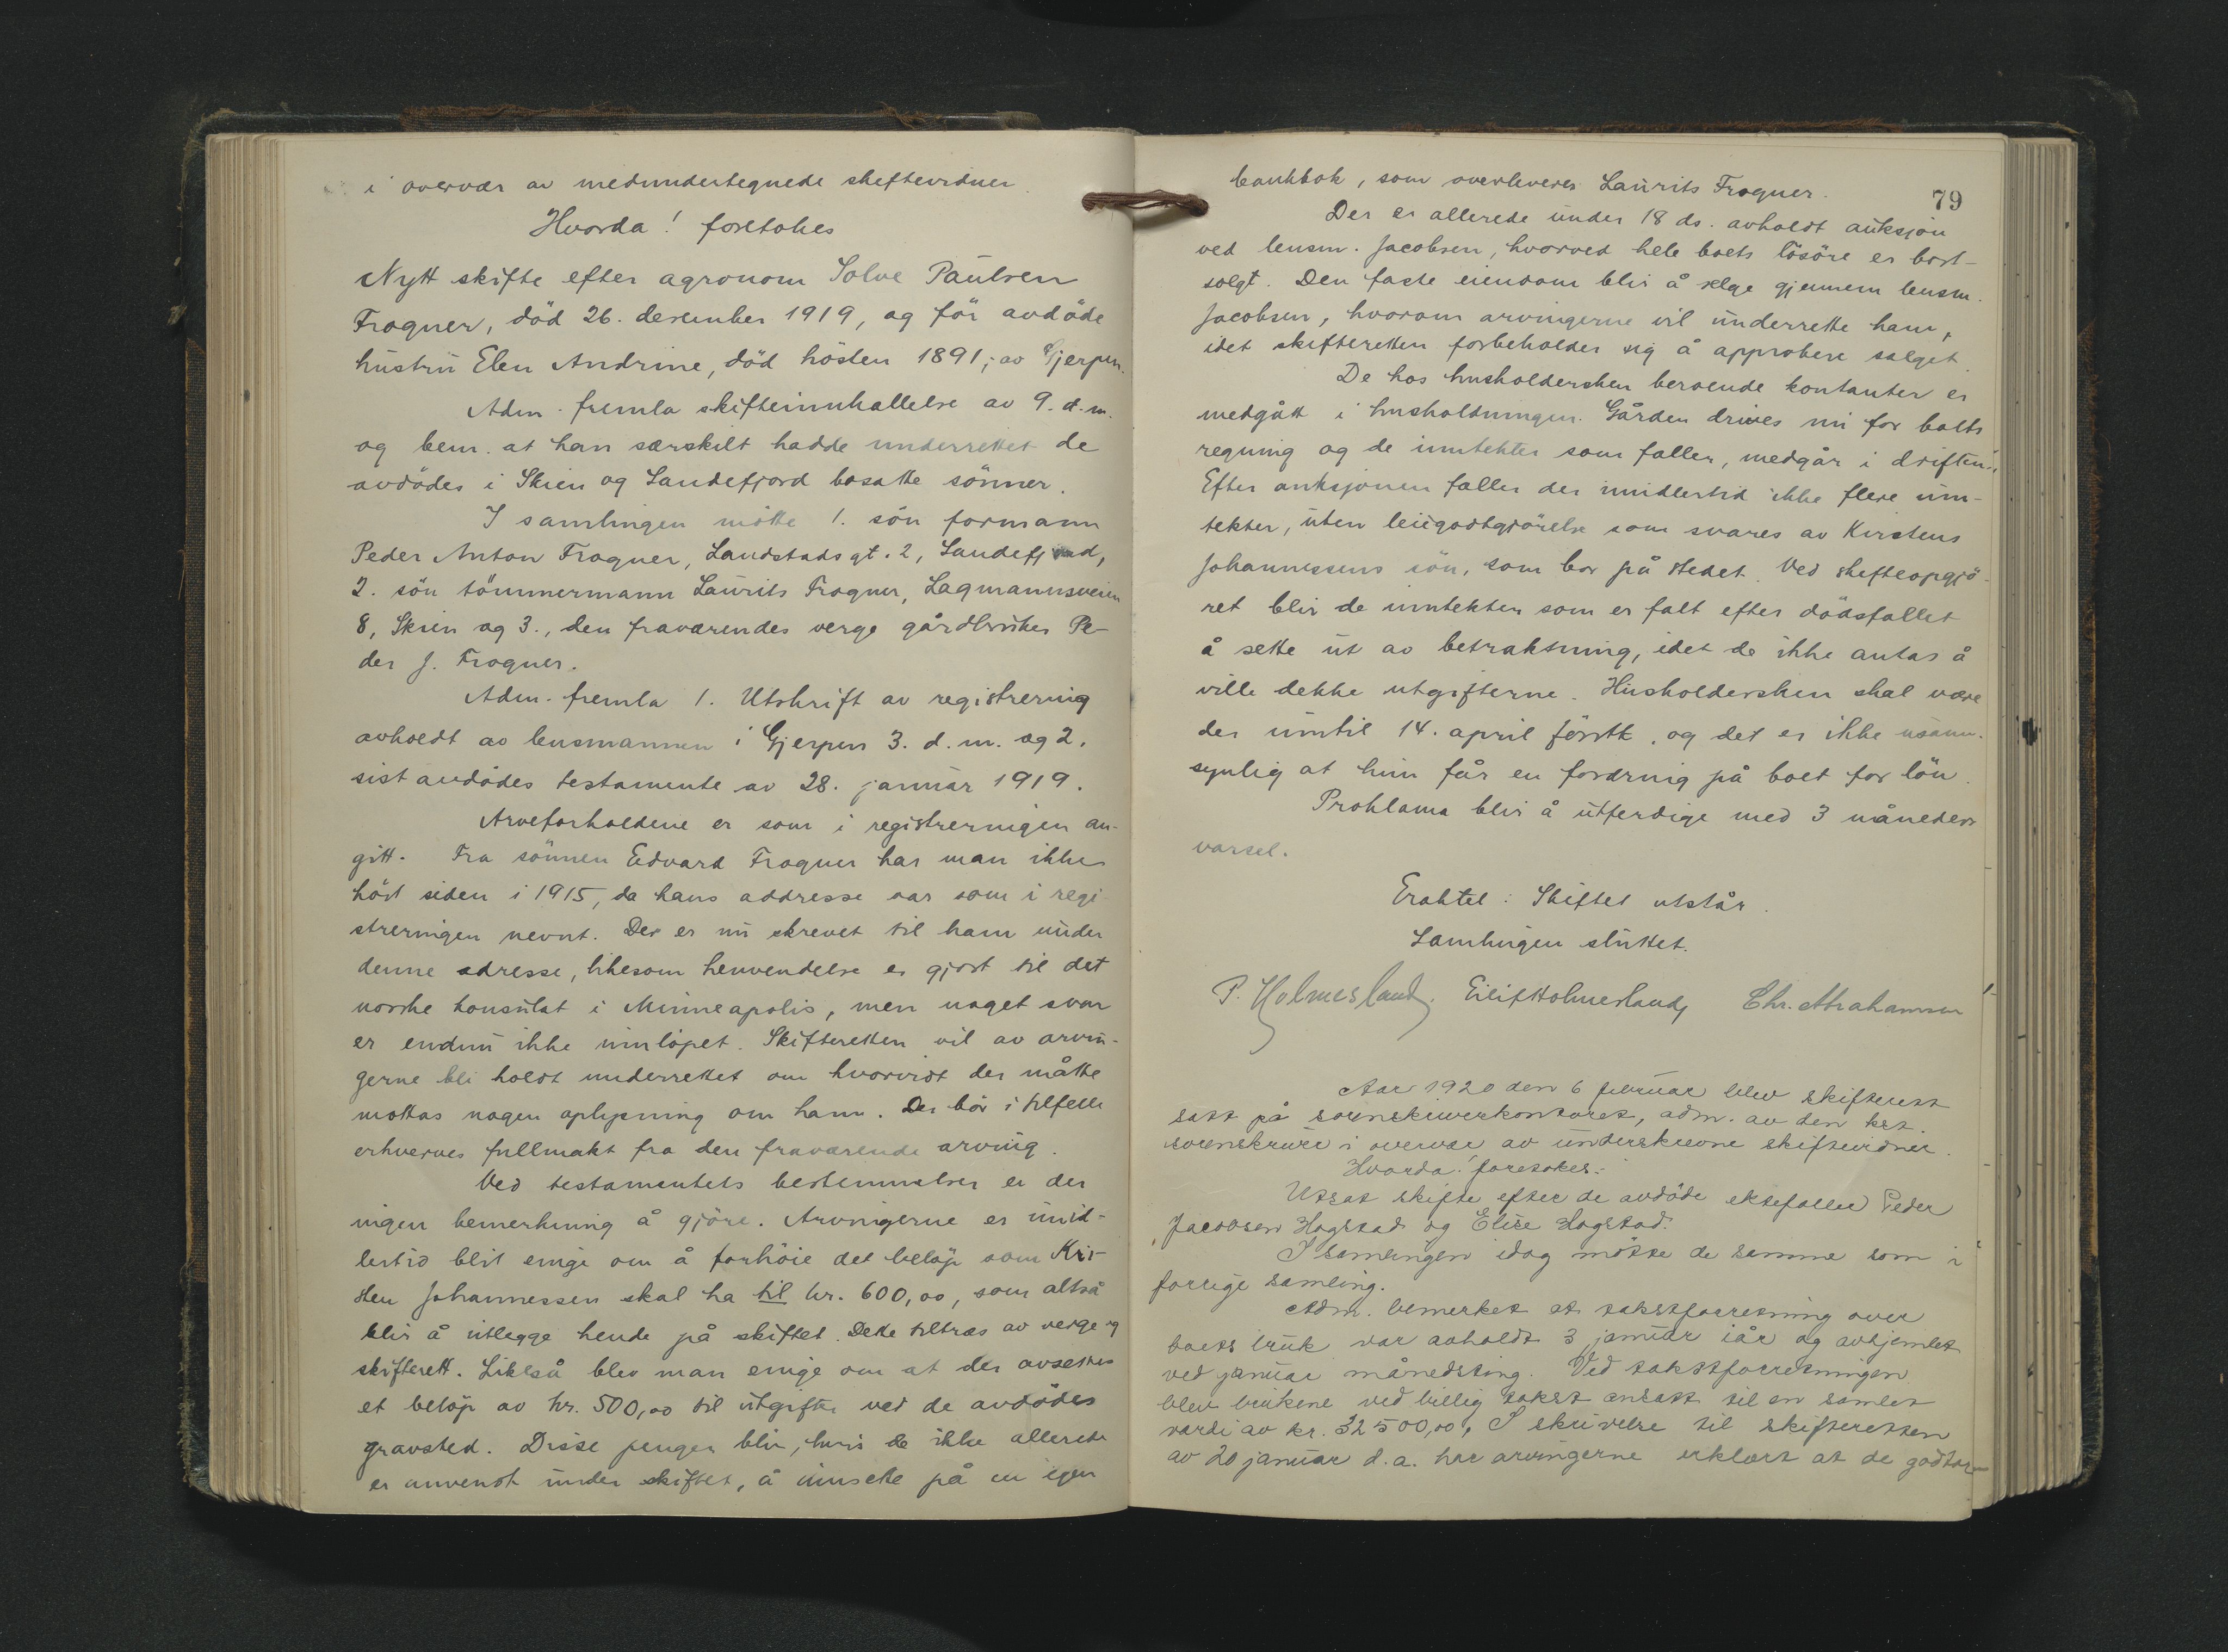 i overvær av medundertegnede skiftevidner.
Hvorda! foretokes
Nytt skifte efter agronom Solve Paulsen
Frogner, död 26. desember 1919, og för avdöde
hustru Elen Andrine, död hösten 1891; av Gjerpen.
Adm. fremla skifteinnkallelse av 9. d. m.
og bem. at han særskilt hadde underrettet de
avdödes i Skien og Sandefjord bosatte sönner.
I samlingen mötte 1. sön formann
Peder Anton Frogner, Landstads gt. 2, Sandefjord,
2. sön tömmermann Laurits Frogner, Lagmannsveien
8, Skien og 3., den fraværendes verge gårdbruker Pe-
der J. Frogner.
Adm. fremla 1. Utskrift av registrering
avholdt av lensmannen i Gjerpen 3. d. m. og 2.
sist avdödes testamente av 28. januar 1919.
Arveforholdene er som i registreringen an-
gitt. Fra sönnen Edvard Frogner har man ikke
hört siden i 1915, da hans addresse var som i regi-
streringen nevnt. Der er nu skrevet til ham under
denne adresse, likesom henvendelse er gjort til det
norske konsulat i Minneapolis, men noget svar
er endnu ikke innlöpet. Skifteretten vil av arvin-
gerne bli holdt underrettet om hvorvidt der måtte
mottas nogen oplysning om ham. Der bör i tilfelle
erhverves fullmakt fra den fraværende arving.
Ved testamentets bestemmelser er der
ingen bemerkning å gjöre. Arvingerne er imid-
lertid blit enige om å forhöie det belöp som Kir-
sten Johannessen skal ha til kr. 600,00, som altså
blir å utlegge hende på skiftet. Dette tiltræs av verge og
skifterett. Likeså blev man enige om at der avsettes
et belöp av kr. 500,00 til utgifter ved de avdödes
gravsted. Disse penger blir, hvis de ikke allerede
er anvendt under skiftet, å innsette på en egen
79
bankbok, som overleveres Laurits Frogner.
Der er allerede under 18 ds. avholdt auksjon
ved lensm. Jacobsen, hvorved hele boets lösöre er bort-
solgt. Den faste eiendom blir å selge gjennem lensm.
Jacobsen, hvorom arvingerne vil underrette ham,
idet skifteretten forbeholder sig å approbere salget.
De hos husholdersken beroende kontanter er
medgått i husholdningen. Gården drives nu for boets
regning og de inntekter som faller, medgår i driften.
Efter auksjonen faller der imidlertid ikke flere inn-
tekter, uten leiegodtgjörelse som svares av Kirstens
Johannessens sön, som bor på stedet. Ved skifteopgjö-
ret blir de inntekter som er falt efter dödsfallet
å sette ut av betraktning, idet de ikke antas å
ville dekke utgifterne. Husholdersken skal være
der inntil 14. april förstk., og det er ikke usann-
synlig at hun får en fordring på boet for lön.
Proklama blir å utferdige med 3 måneders
varsel.
Eraktet: Skiftet utstår.
Samlingen sluttet.
P. Holmesland. Eilif Holmesland Chr. Abrahamsen
Aar 1920 den 6 februar blev skifterett
satt på sorenskriverkontoret, adm. av den kst.
sorenskriver i overvær av underskrevne skiftevidner.
Hvorda! foretokes:
Utsat skifte efter de avdöde ektefoller Peder
Jacobsen Hogstad og Elise Hogstad.
I samlingen idag mötte de samme som i
forrige samling.
Adm. bemerket at takstforretning over
boets bruk var avholdt 3 januar iår og avhjemlet
ved januar månedsting. Ved takstforretningen
blev brukene ved villig takst ansatt til en samlet
værdi av kr. 32500,00. I skrivelse til skifteretten
av 20 januar d.a. har arvingerne erklært at de godtar